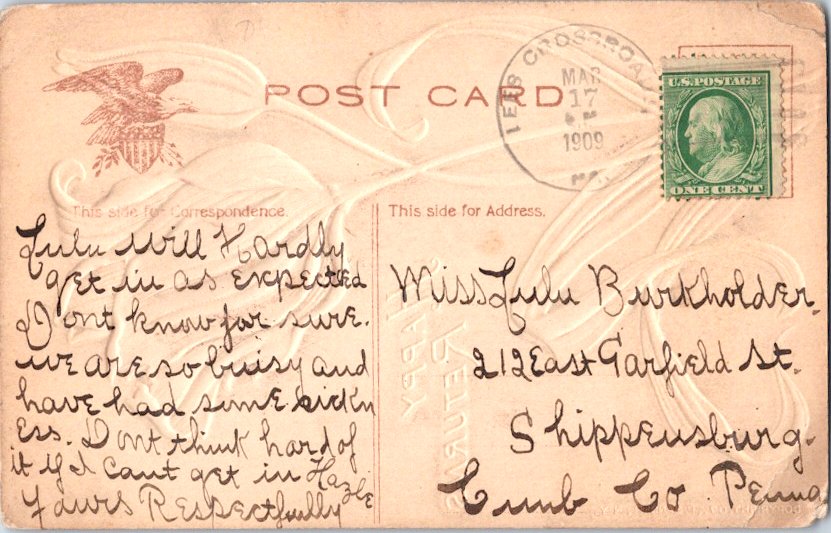 POST CARD
LEES CROSSROADS
MAR
17
1909
PA.
U.S. POSTAGE
ONE CENT
This side for Correspondence.
This side for Address.
Lulu will Hardly
get in as expected
Dont know for sure.
we are so buisy and
have had some sickn
ess. Dont think hard of
it if I cant get in Hazle
yours Respectfully
Miss Lulu Burkholder.
212 East Garfield St.
Shippensburg.
Cumb Co Penna
HAPPY
RETURNS